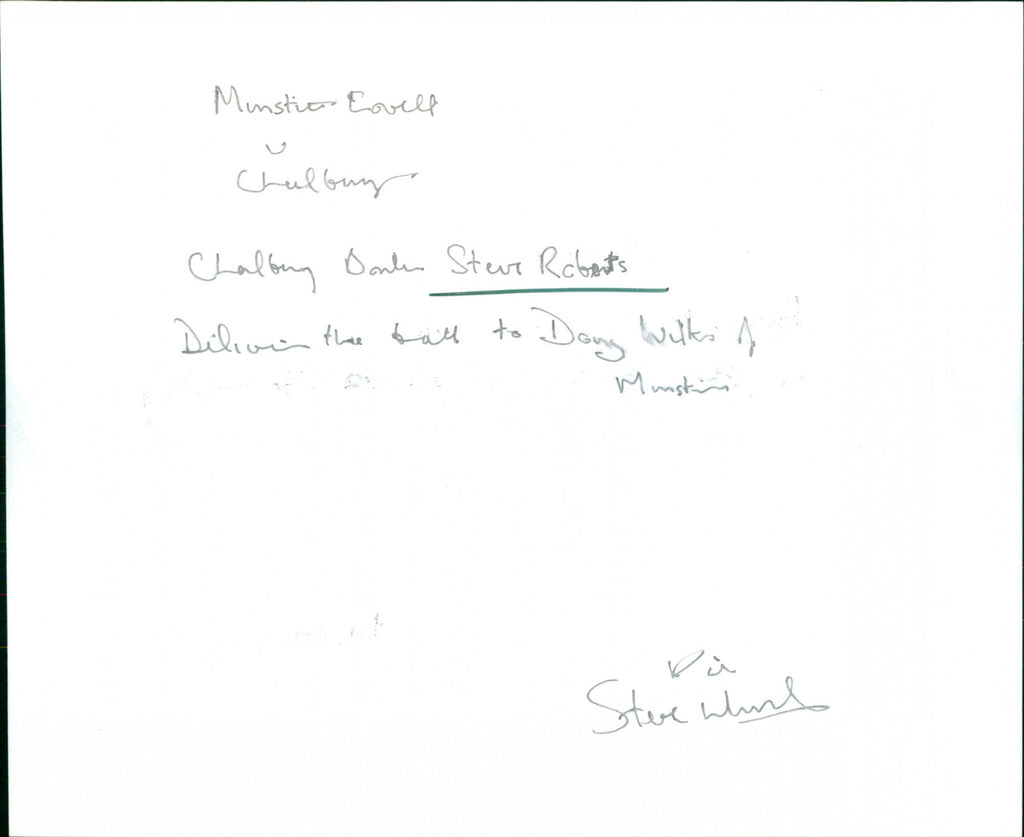 Minster Lovell
v
Charlbury
Charlbury Steve Roberts
Delivers the ball to Doug Wilks of
Minster
Pic
Steve